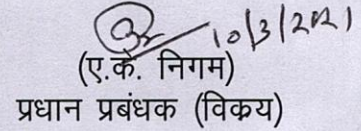 10/3/2021
(ए.के. निगम)
प्रधान प्रबंधक (विक्रय)